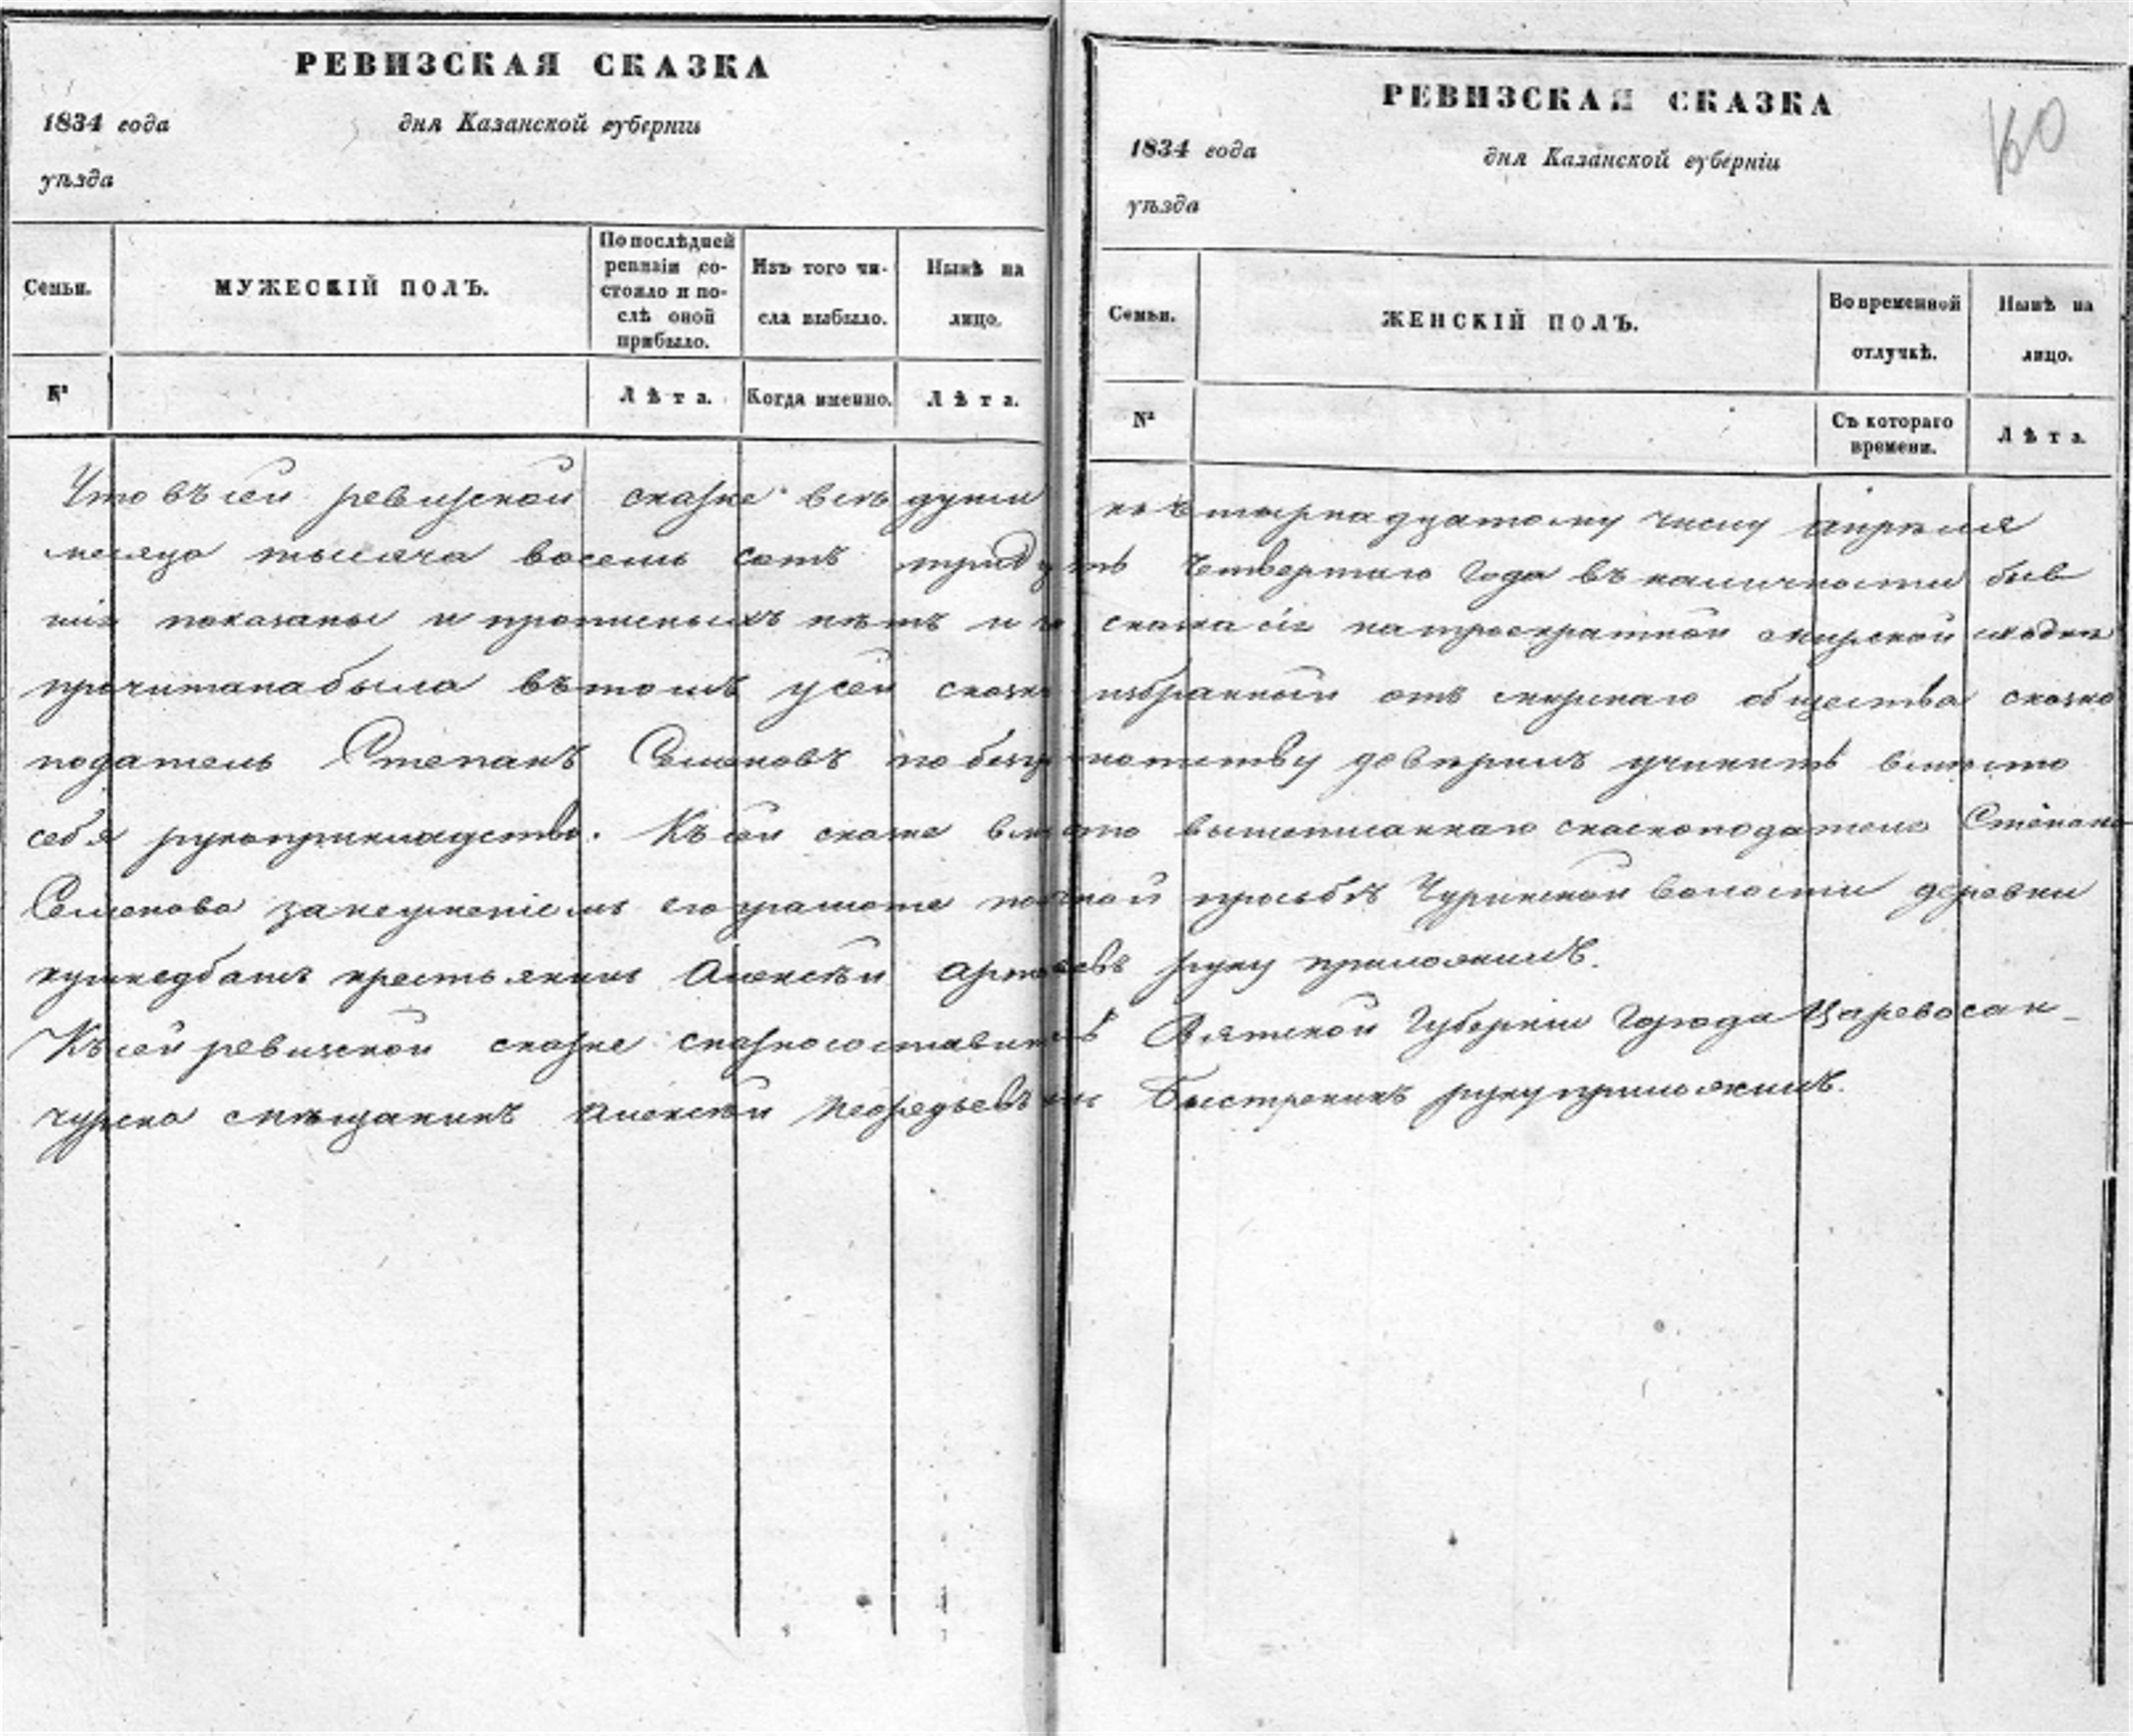 РЕВИЗСКАЯ СКАЗКА
1834 года дня Казанской губерніи
уѣзда
Семьи.
МУЖЕСКІЙ ПОЛЪ.
По послѣдней
ревизіи со-
стояло и по-
слѣ оной
прибыло.
Изъ того чи-
сла выбыло.
Нынѣ на
лицо.
№
Лѣта.
Когда именно.
Лѣта.
РЕВИЗСКАЯ СКАЗКА
160
1834 года дня Казанской губерніи
уѣзда
Семьи.
ЖЕНСКІЙ ПОЛЪ.
Во временной
отлучкѣ.
Нынѣ на
лицо.
№
Съ котораго
времени.
Лѣта.
Что въ сей ревизской сказке все души четырнадцатому числу апреля
месяца тысяча восемь сотъ тридцать Четвертаго Года въ наличности быв
шія показаны и прописныхъ нѣтъ и сказка сія на троекратной мирской сходке
прочитана была въ томъ у сей сказки избранный отъ мирскаго общества сказко
податель Степанъ Семеновъ по безграмотству доверилъ учинить вместо
себя рукоприкладство. Къ сей сказке вместо вышеписаннаго скаскоподателя Степана
Семенова за неумениемъ его грамоте по личной просьбѣ Чуринской Волости деревни
крестьянинъ Алексѣй руку приложилъ.
Къ сей ревизской сказке сказкосоставитель Вятской Губерніи Города Царевосан-
чурска мѣщанинъ Алексѣй Быстренинъ руку приложилъ.